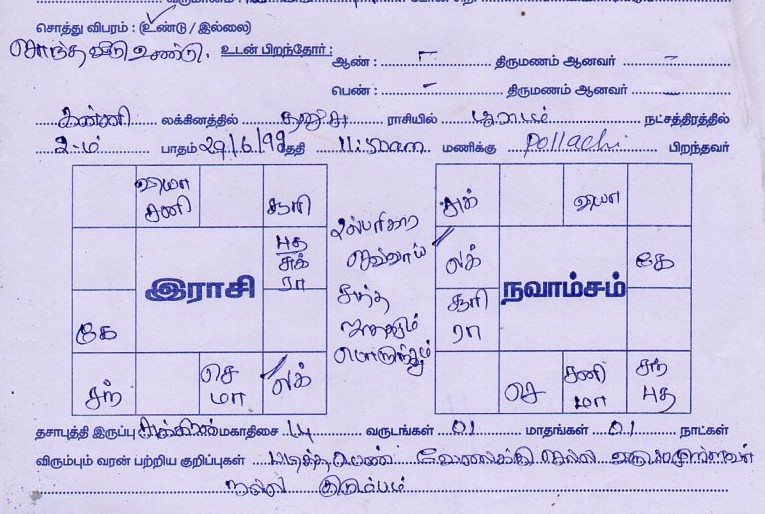 சொத்து விபரம் : (உண்டு / இல்லை)
சொந்த வீடு உண்டு. உடன் பிறந்தோர் : ஆண் : திருமணம் ஆனவர் –
பெண் : – திருமணம் ஆனவர் –
கன்னி லக்கினத்தில் தனுசு ராசியில் பூராடம் நட்சத்திரத்தில்
2-ம் பாதம் 29/6/99 தேதி 11:50am மணிக்கு Pollachi பிறந்தவர்
வியா சனி சூரி
புத சுக் ரா
இராசி
கே
சந் செ மா லக்
பரிகார செவ்வாய்
சுத்த ஜாதகம்
பொருந்தும்
சுக் வியா
லக் கே
நவாம்சம்
சூரி ரா
செ சனி மா சந் புத
தசாபுத்தி இருப்பு சுக்கிரன் மகாதிசை 14 வருடங்கள் 01 மாதங்கள் 01 நாட்கள்
விரும்பும் வரன் பற்றிய குறிப்புகள் படித்த பெண் நல்ல
நல்ல குடும்பம்